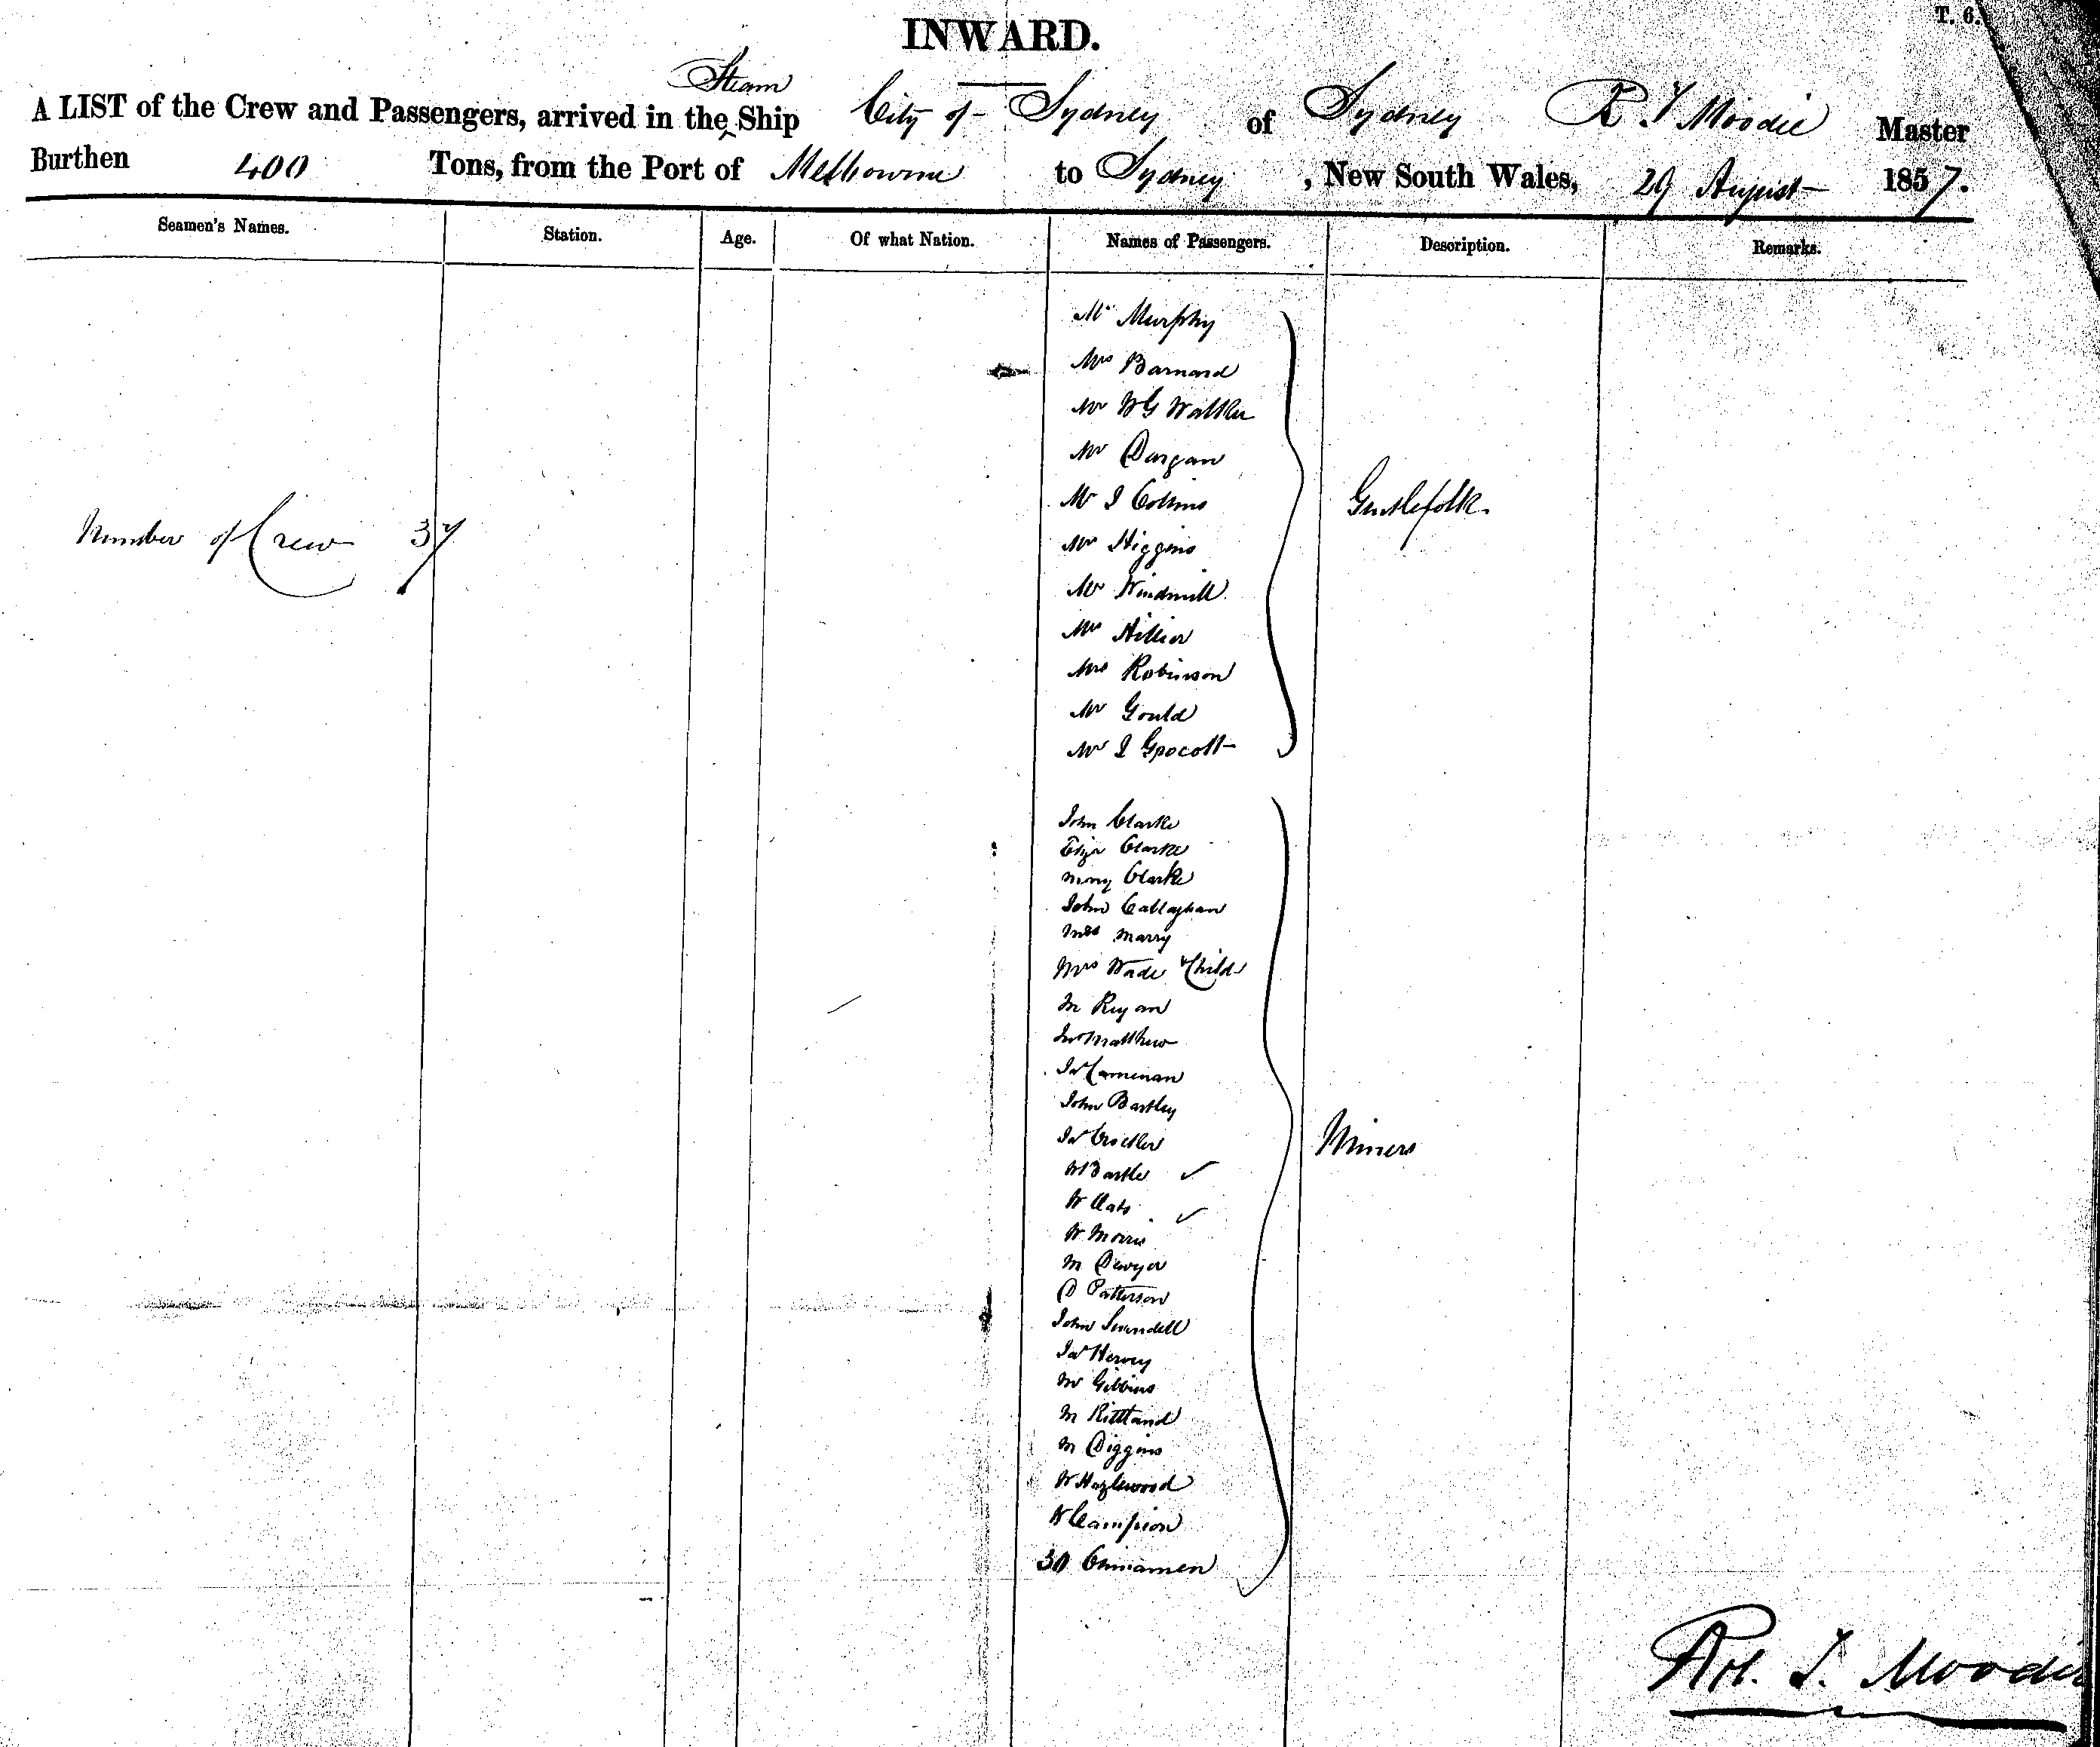 T. 6.
INWARD.
Steam
A LIST of the Crew and Passengers, arrived in the Ship City of Sydney of Sydney R T Moodie Master
Burthen 400 Tons, from the Port of Melbourne to Sydney, New South Wales, 29 August 1857.
Seamen's Names. Station. Age. Of what Nation. Names of Passengers. Description. Remarks.
Mr Murphy
Mrs Barnard
Mr W G Walker
Mr Durgan
Mr I Collins
Gentlefolk.
Number of Crew 37
Mr Higgins
Mr Windmill
Mr Hillier
Mrs Robinson
Mr Gould
Mr I
John Clarke
Eliza Clarke
Mary Clarke
John Callaghan
Mrs Marry
Mrs Wade & Child
M Ryan
Jno Matthew
Jas
John Bartley
Jas
Miners
W Bartle
W Oats
W Morris
M Dwyer
D Patterson
John Swindell
Jas Hervey
W Gibbins
M Rittland
M Diggins
W Hazlewood
W Campion
30 Chinamen
Rot. T. Moodie